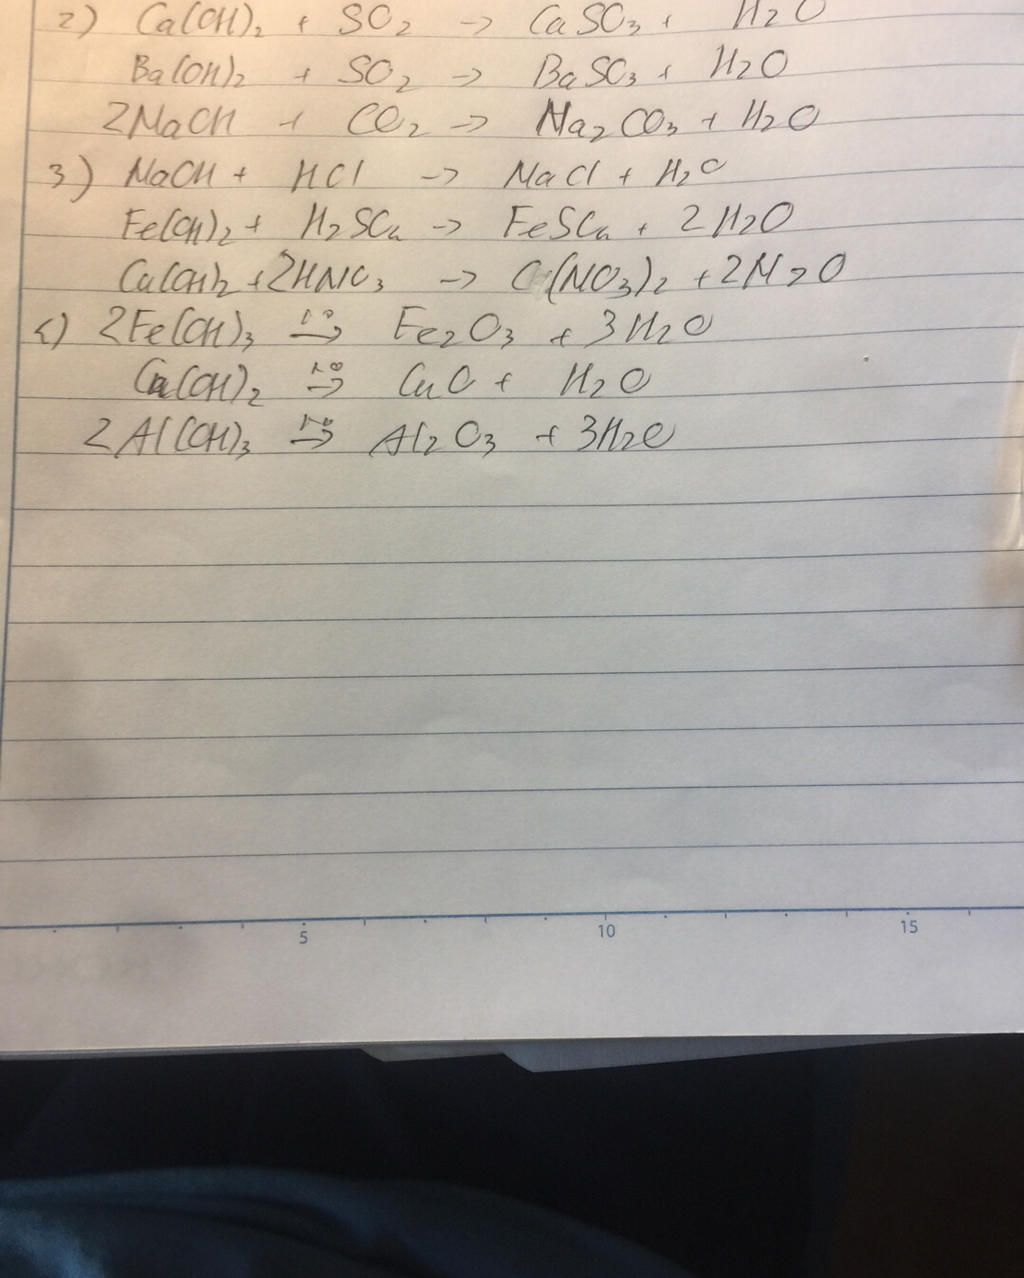 2) Ca(OH)₂ + SO₂ -> CaSO₃ + H₂O
Ba(OH)₂ + SO₂ -> BaSO₃ + H₂O
2NaOH + CO₂ -> Na₂CO₃ + H₂O
3) NaOH + HCl -> NaCl + H₂O
Fe(OH)₂ + H₂SO₄ -> FeSO₄ + 2H₂O
Cu(OH)₂ + 2HNO₃ -> C(NO₃)₂ + 2H₂O
4) 2Fe(OH)₃ t° -> Fe₂O₃ + 3H₂O
Cu(OH)₂ t° -> CuO + H₂O
2Al(OH)₃ t° -> Al₂O₃ + 3H₂O
5 10 15